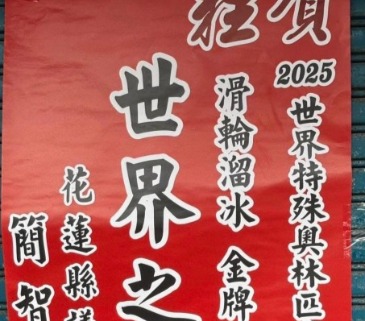 賀
2025世界特殊奧林匹
滑輪溜冰 金牌
世界之
花蓮縣
簡智